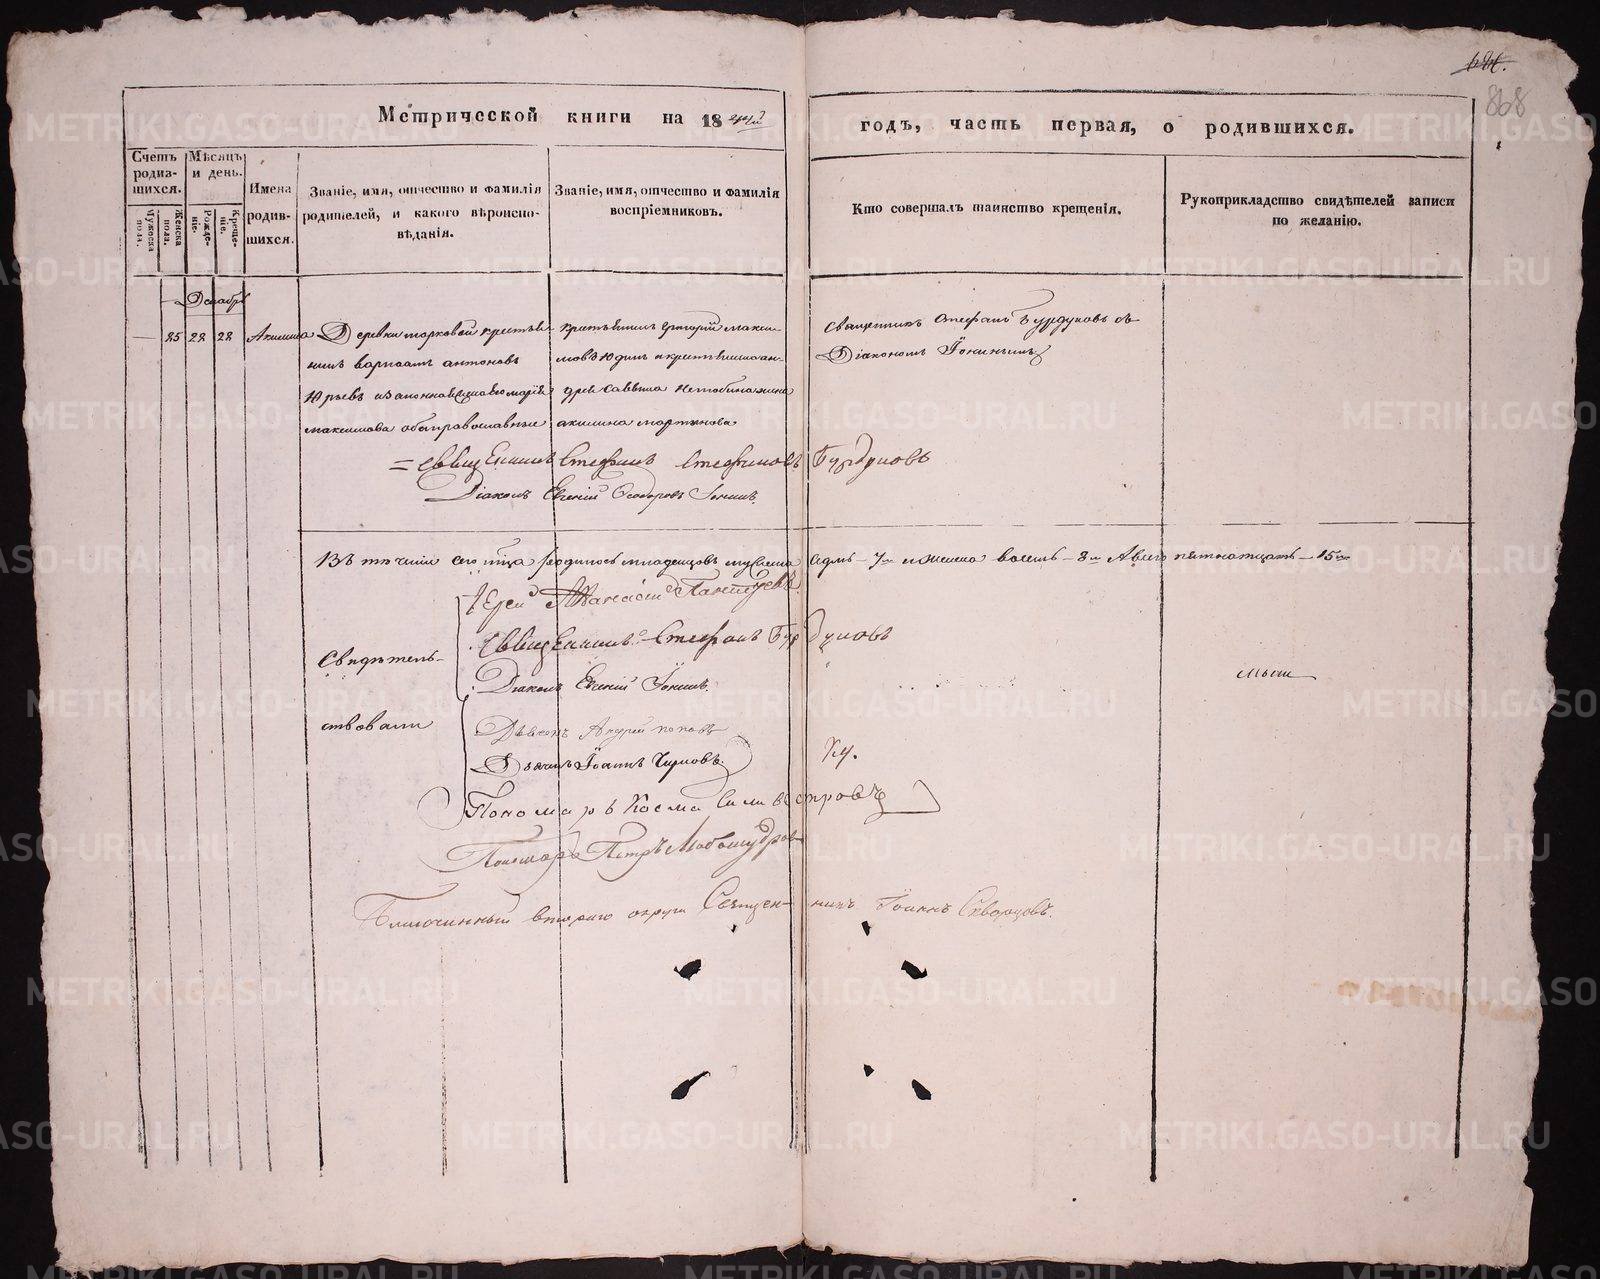 868
Метрической книги на 18
годъ, часть первая, о родившихся.
Счетъ родив-шихся.
Мѣсяцъ и день.
Мужеска пола.
Женска пола.
Рожде-нie.
Креще-нie.
Имена родив-шихся.
Званіе, имя, отчество и фамилія
родителей, и какого вѣроиспо-
вѣданія.
Званіе, имя, отчество и фамилія
воспріемниковъ.
Кто совершалъ таинство крещенія.
Рукоприкладство свидѣтелей записи
по желанію.
Декабрь
— 25 28 28 Акилина
Деревни марковой крестья-
нинъ варлаамъ антоновъ
Юрьевъ изаконнаяженаево марія
максимова обаправославные
крестьянинъ григорій макси-
мовъ Юдинъ
акилина мартынова
Священникъ Стефанъ Бурдуковъ съ
Діакономъ Іонинымъ
Священникъ Стефанъ Стефановъ Бурдуковъ
Діаконъ Евгеній Ѳеодоровъ Іонинъ
Въ теченіи сего мца родилось младенцовъ мужеска седмь – 7 и женска восемь – 8 Авсего пятнатцать – 15
Свидѣтель-
ствовали
Іерей Аѳанасій
Священникъ Стефанъ Бурдуковъ
Діаконъ Евгеній Іонинъ
Андрей поповъ
Дьячекъ Іоаннъ
Пономарь Косма Силивестровъ
Пономарь Петръ Любомудровъ
Благочинный втораго округа Священникъ Іоаннъ Скворцовъ.